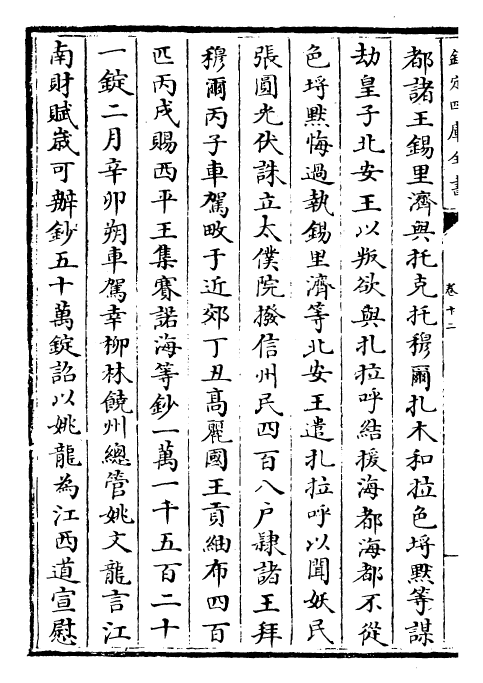 欽定四庫全書
卷十二
都諸王錫里濟與托克托穆爾扎木和拉色埒黙等謀
劫皇子北安王以叛欲與扎拉呼結援海都海都不從
色埒黙悔過執錫里濟等北安王遣扎拉呼以聞妖民
張圓光伏誅立太僕院撥信州民四百八户隸諸王拜
穆爾丙子車駕畋于近郊丁丑髙麗國王貢紬布四百
匹丙戌賜西平王集賽諾海等鈔一萬一千五百二十
一錠二月辛卯朔車駕幸柳林饒州總管姚文龍言江
南財賦歳可辦鈔五十萬錠詔以姚龍為江西道宣慰